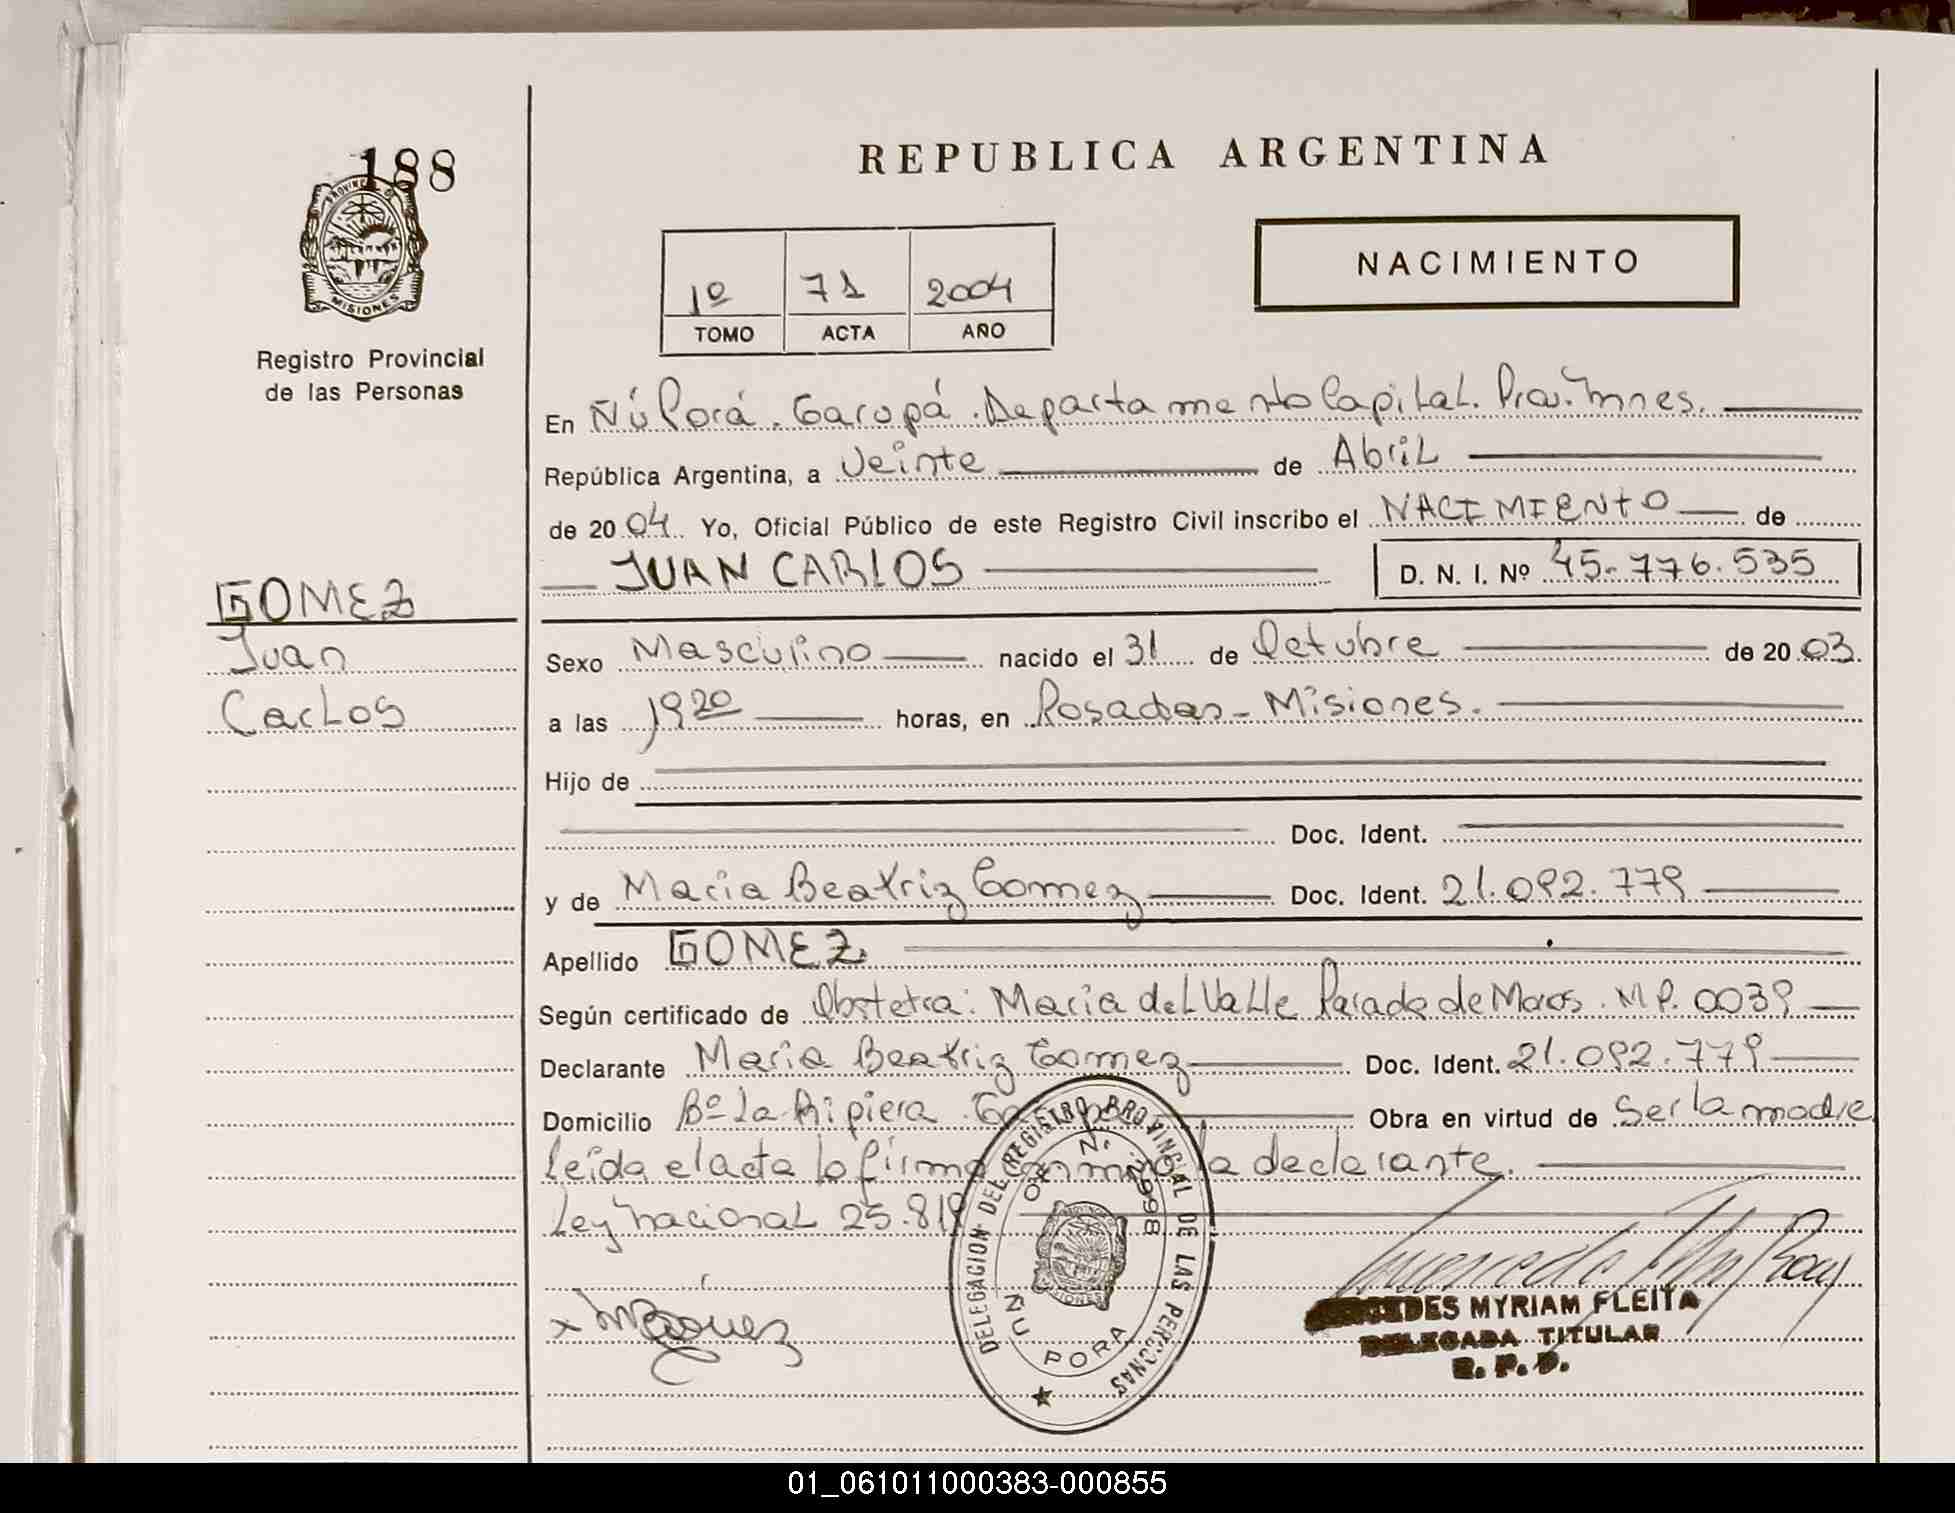 188
PROVINCIA DE
MISIONES
Registro Provincial
de las Personas
REPUBLICA ARGENTINA
NACIMIENTO
1º 71 2004
TOMO ACTA AÑO
En Ñú Porá. Garupá. Departamento Capital. Prov. Mnes.
República Argentina, a veinte de Abril
de 2004. Yo, Oficial Público de este Registro Civil inscribo el NACIMIENTO de
JUAN CARLOS D. N. I. Nº 45.776.535
GOMEZ
Juan
Carlos
Sexo Masculino nacido el 31 de Octubre de 2003.
a las 19 20 horas, en Posadas - Misiones.
Hijo de
Doc. Ident.
y de Maria Beatriz Gomez Doc. Ident. 21.092.779
Apellido GOMEZ
Según certificado de Obstetra: Maria del Valle Parada de M.P. 0039
Declarante Maria Beatriz Gomez Doc. Ident. 21.092.779
Domicilio Bº La Ripiera Obra en virtud de Ser la madre
Leída el acta la firma conmigo la declarante.
Ley nacional 25.819
DELEGACION DEL REGISTRO PROVINCIAL DE LAS PERSONAS
2998
ÑU PORA
MYRIAM FLEITA
DELEGADA TITULAR
R. P. P.
01_061011000383-000855